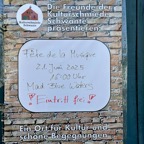 Die Freunde der
Kulturschmiede
Schwante
präsentieren:
Fête de la Musique
21. Juni 2025
18:00 Uhr
Mad Blue Waters
Eintritt frei
Ein Ort für Kultur und
schöne Begegnungen